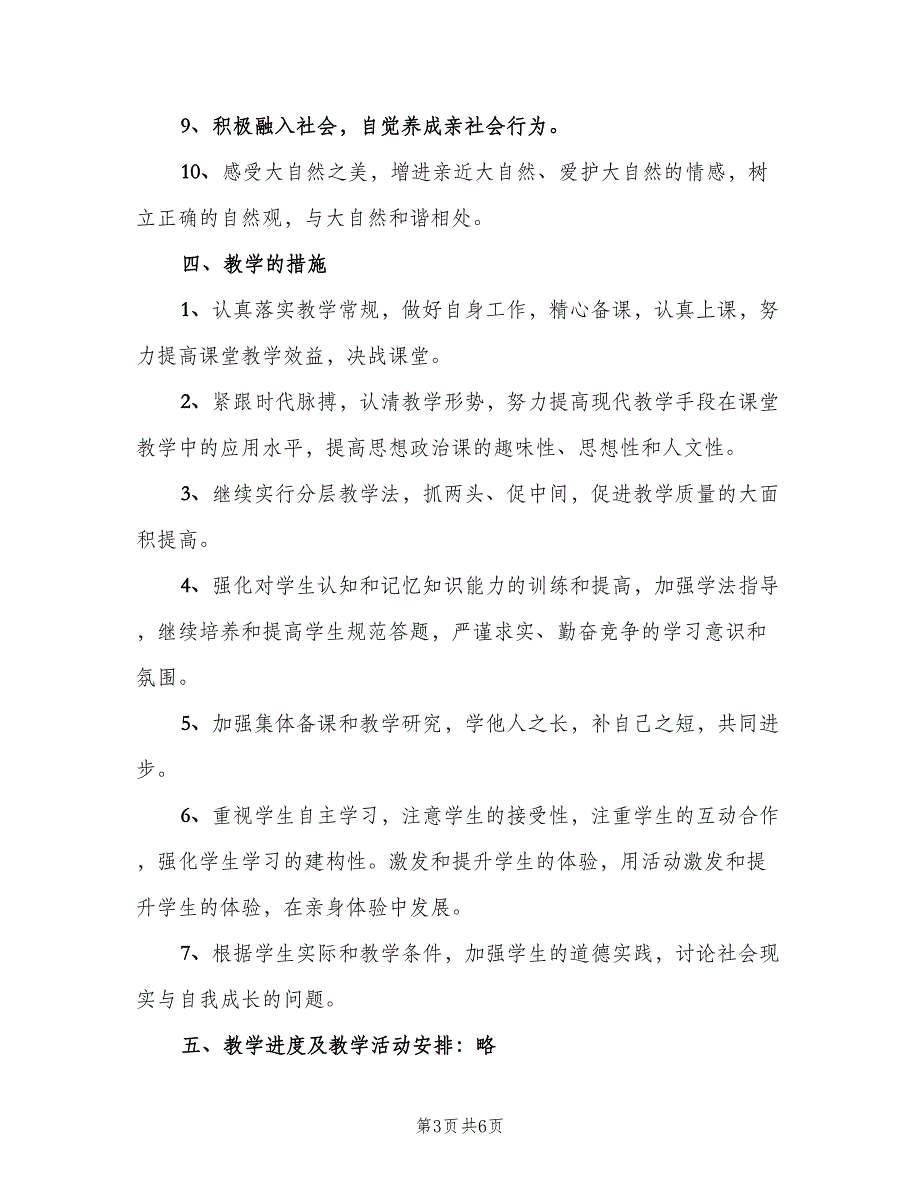 9、积极融入社会，自觉养成亲社会行为。
10、感受大自然之美，增进亲近大自然、爱护大自然的情感，树
立正确的自然观，与大自然和谐相处。
四、教学的措施
1、认真落实教学常规，做好自身工作，精心备课，认真上课，努
力提高课堂教学效益，决战课堂。
2、紧跟时代脉搏，认清教学形势，努力提高现代教学手段在课堂
教学中的应用水平，提高思想政治课的趣味性、思想性和人文性。
3、继续实行分层教学法，抓两头、促中间，促进教学质量的大面
积提高。
4、强化对学生认知和记忆知识能力的训练和提高，加强学法指导
，继续培养和提高学生规范答题，严谨求实、勤奋竞争的学习意识和
氛围。
5、加强集体备课和教学研究，学他人之长，补自己之短，共同进
步。
6、重视学生自主学习，注意学生的接受性，注重学生的互动合作
，强化学生学习的建构性。激发和提升学生的体验，用活动激发和提
升学生的体验，在亲身体验中发展。
7、根据学生实际和教学条件，加强学生的道德实践，讨论社会现
实与自我成长的问题。
五、教学进度及教学活动安排：略
第3页共6页